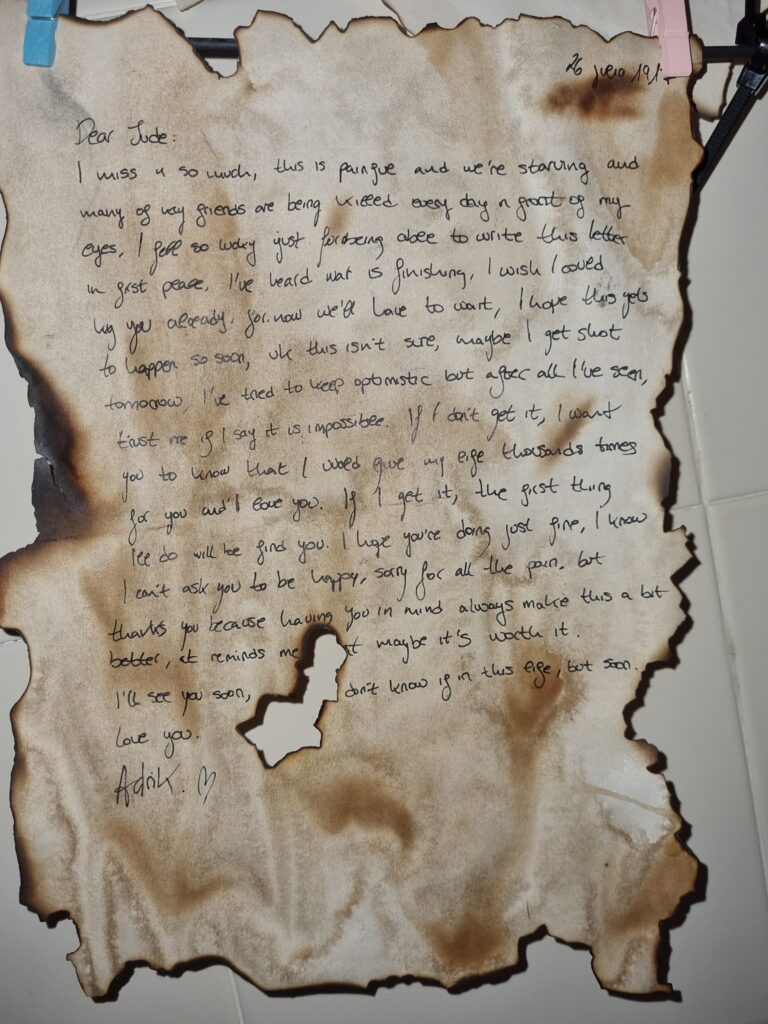 26 julio 191
Dear Jude:
I miss u so much, this is painful and we're starving and
many of my friends are being killed every day n front of my
eyes, I feel so lucky just for being able to write this letter
in first peace. I've heard war is finishing, I wish I could
hug you already, for now we'll have to wait, I hope this gets
to happen so soon, uk this isn't sure, maybe I get shot
tomorrow, I've tried to keep optomistic but after all I've seen,
trust me if I say it is impossible. If I don't get it, I want
you to know that I would give my life thousands times
for you and I love you. If I get it, the first thing
I'll do will be find you. I hope you're doing just fine, I know
I can't ask you to be happy, sorry for all the pain, but
thanks you because having you in mind always make this a bit
better, it reminds me t maybe it's worth it.
I'll see you soon, don't know if in this life, but soon.
Love you.
Adrik. ♡